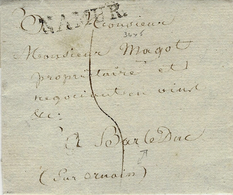 NAMUR
Monsieur
Monsieur Magot
propriétaire et
négociant en vins
&c:
à Bar le Duc
(Sur ornain)